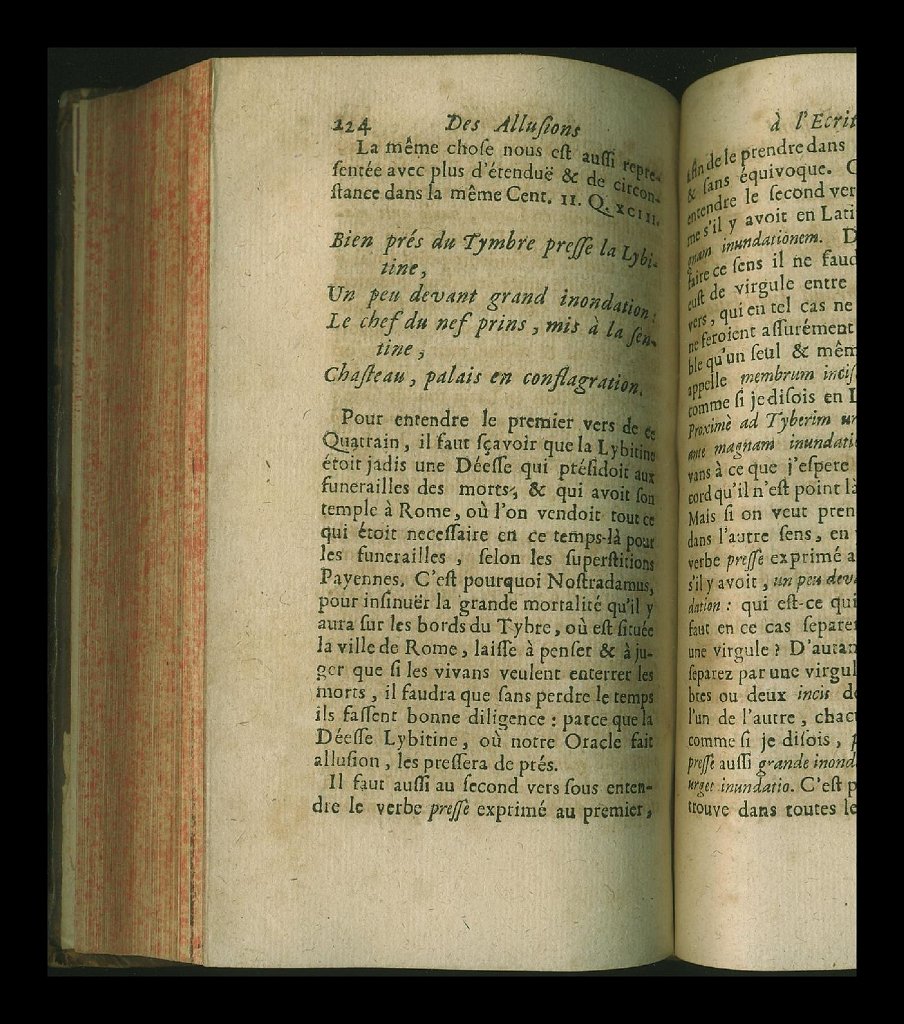 224 Des Alluſions
La même choſe nous eſt auſſi repre-
ſentée avec plus d'étenduë & de circon-
ſtance dans la même Cent. 11. Q. xciii.
Bien prés du Tymbre preſſe la Lybi-
tine,
Un peu devant grand inondation:
Le chef du nef prins, mis à la ſen-
tine,
Chaſteau, palais en conflagration.
Pour entendre le premier vers de ce
Quatrain, il faut ſçavoir que la Lybitine
étoit jadis une Déeſſe qui préſidoit aux
funerailles des morts, & qui avoit ſon
temple à Rome, où l'on vendoit tout ce
qui étoit neceſſaire en ce temps-là pour
les funerailles, ſelon les ſuperſtitions
Payennes. C'eſt pourquoi Noſtradamus,
pour inſinuër la grande mortalité qu'il y
aura ſur les bords du Tybre, où eſt ſituée
la ville de Rome, laiſſe à penſer & à ju-
ger que ſi les vivans veulent enterrer les
morts, il faudra que ſans perdre le temps
ils faſſent bonne diligence: parce que la
Déeſſe Lybitine, où notre Oracle fait
alluſion, les preſſera de prés.
Il faut auſſi au ſecond vers ſous enten-
dre le verbe preſſe exprimé au premier,
à l'Ecrit
afin de le prendre dans
& ſans équivoque. C
entendre le ſecond ver
me s'il y avoit en Lati
gnam inundationem. D
faire ce ſens il ne faud
euſt de virgule entre
vers, qui en tel cas ne
ne feroient aſſurément
ble qu'un ſeul & mêm
appelle membrum inciſ
comme ſi je diſois en L
Proximè ad Tyberim ur
ante magnam inundati
vans à ce que j'eſpere
cord qu'il n'eſt point là
Mais ſi on veut pren
dans l'autre ſens, en
verbe preſſe exprimé a
s'il y avoit, un peu deva
dation: qui eſt-ce qui
faut en ce cas ſeparer
une virgule? D'autan
ſeparez par une virgul
bres ou deux incis de
l'un de l'autre, chac
comme ſi je diſois, p
preſſe auſſi grande inond
urget inundatio. C'eſt p
trouve dans toutes le